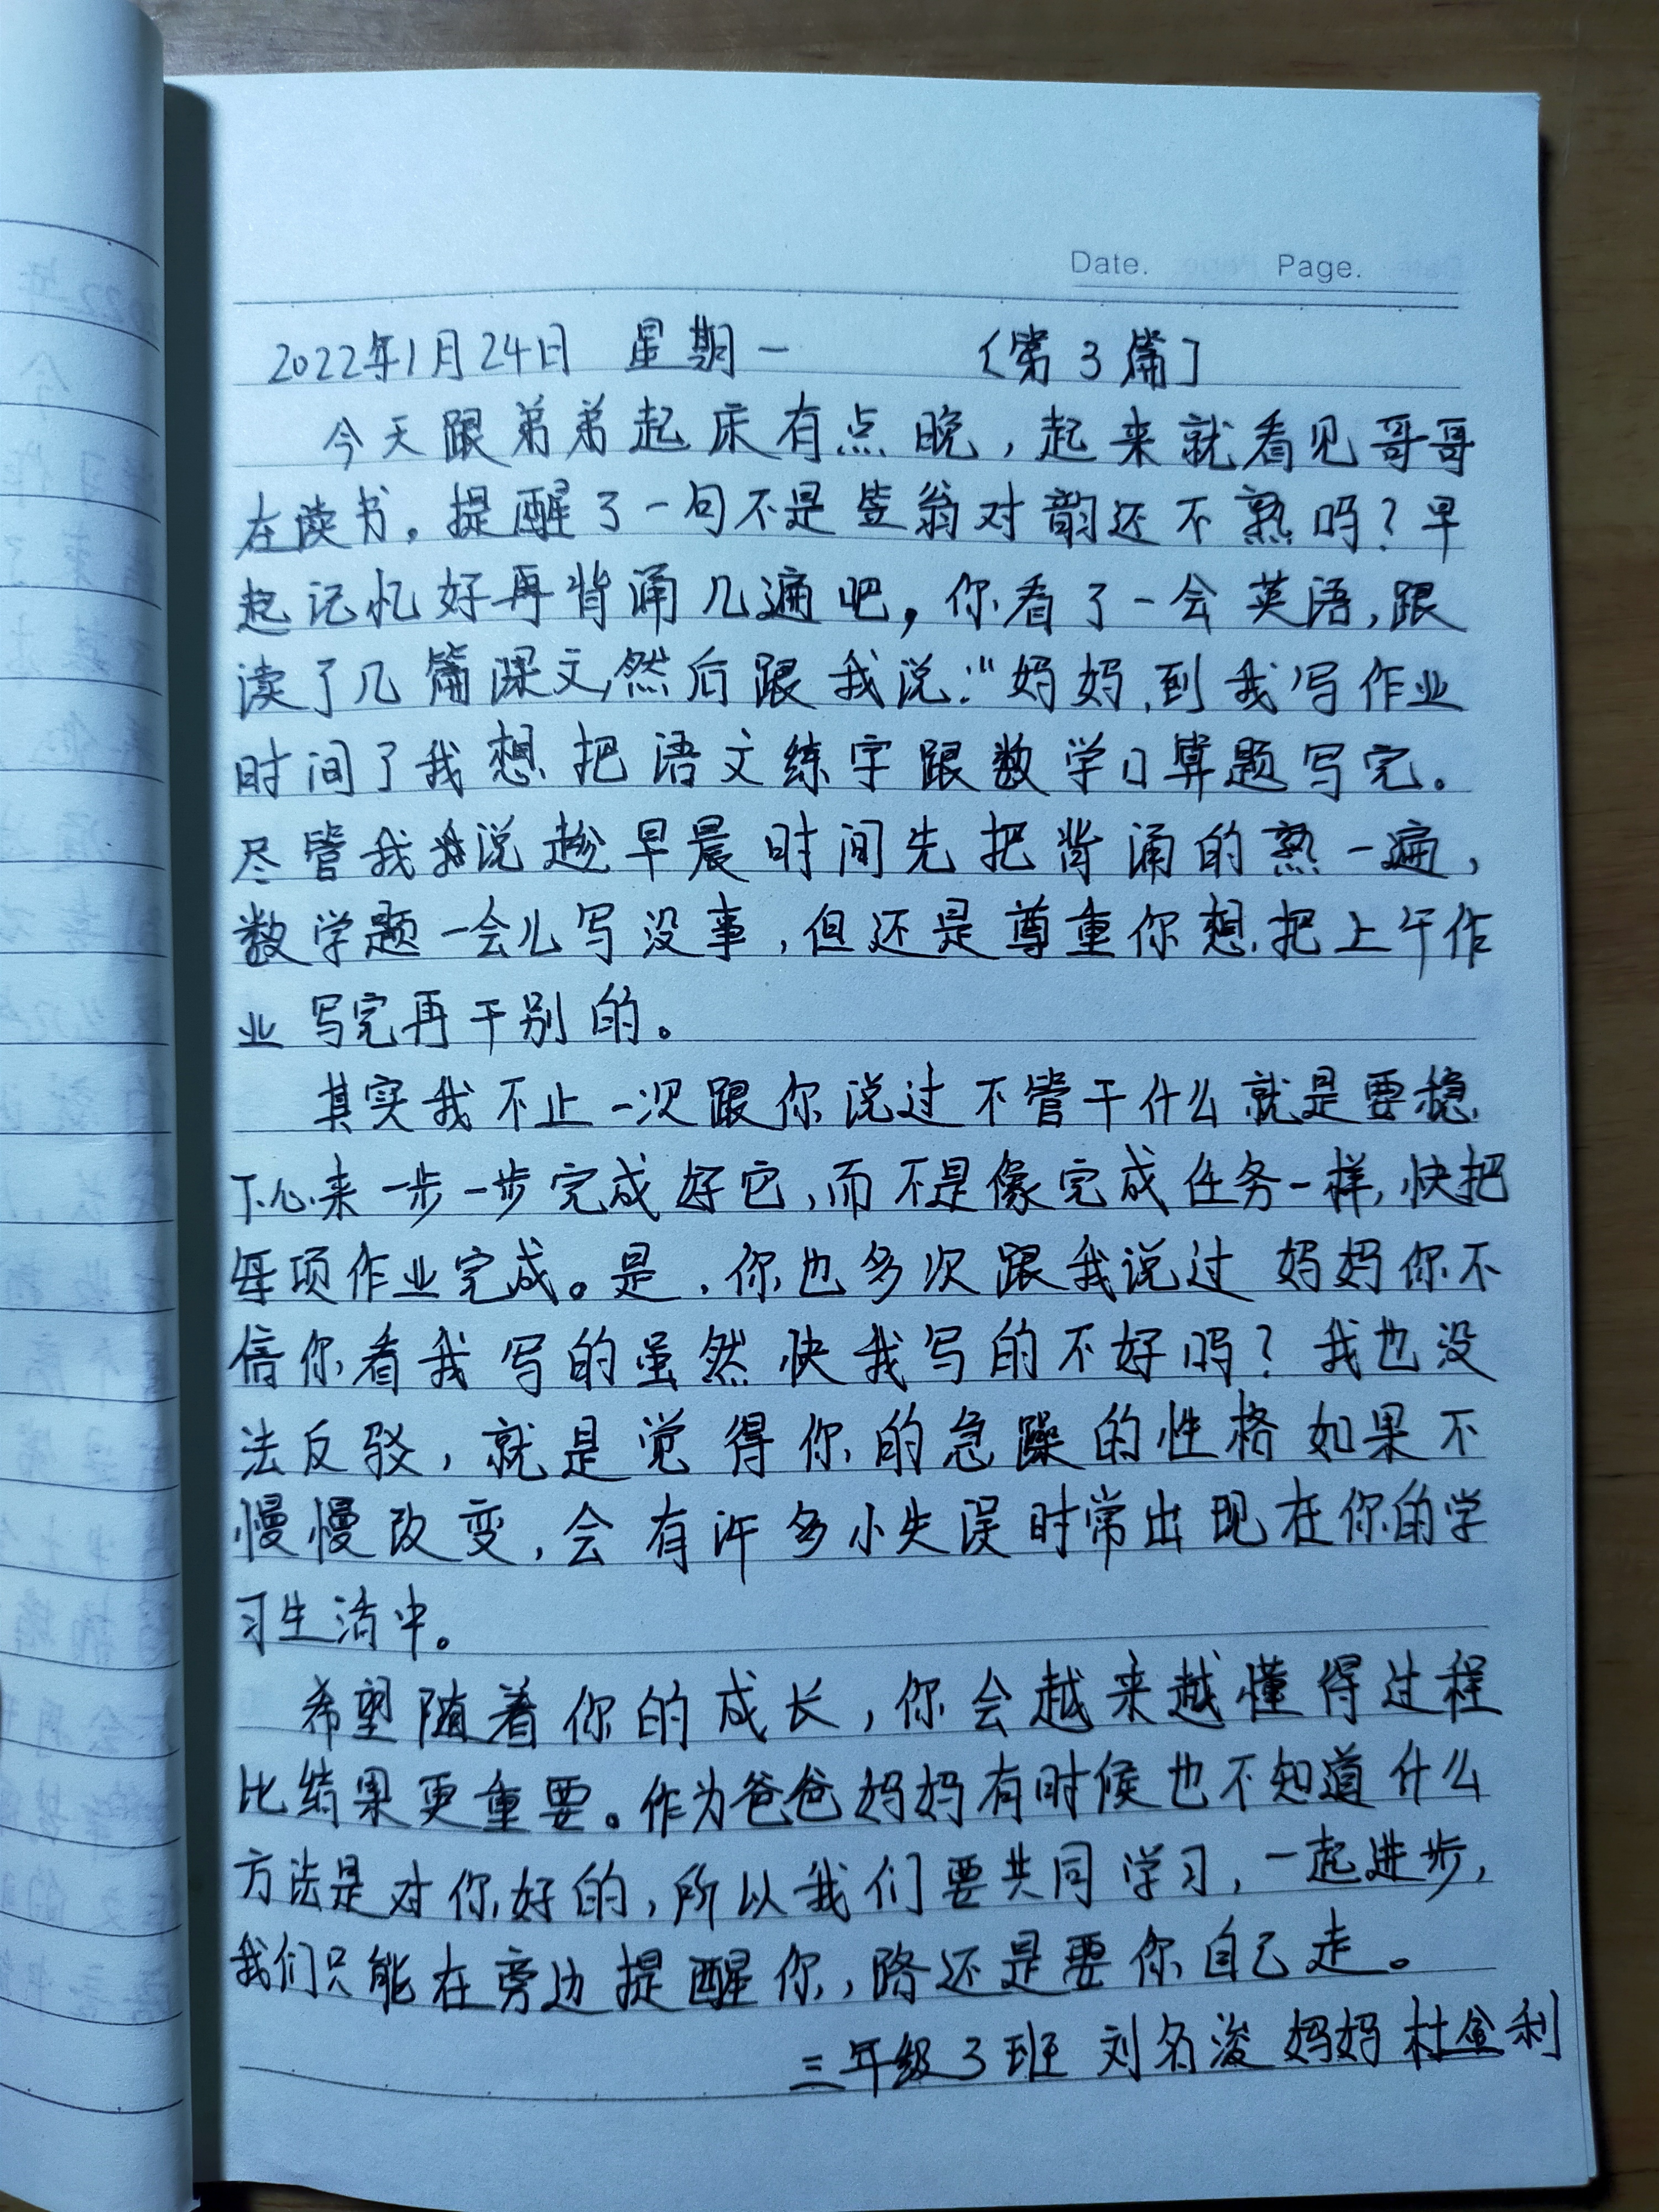 Date. Page.
2022年1月24日 星期一 〔第3篇〕
今天跟弟弟起床有点晚，起来就看见哥哥
在读书。提醒了一句不是笠翁对韵还不熟吗？早
起记忆好再背诵几遍吧，你看了一会英语，跟
读了几篇课文，然后跟我说：“妈妈，到我写作业
时间了我想把语文练字跟数学口算题写完。
尽管我说趁早晨时间先把背诵的熟一遍，
数学题一会儿写没事，但还是尊重你想把上午作
业写完再干别的。
其实我不止一次跟你说过不管干什么就是要稳
下心来一步一步完成好它，而不是像完成任务一样，快把
每项作业完成。是，你也多次跟我说过 妈妈你不
信你看我写的虽然快我写的不好吗？我也没
法反驳，就是觉得你的急躁的性格如果不
慢慢改变，会有许多小失误时常出现在你的学
习生活中。
希望随着你的成长，你会越来越懂得过程
比结果更重要。作为爸爸妈妈有时候也不知道什么
方法是对你好的，所以我们要共同学习，一起进步，
我们只能在旁边提醒你，路还是要你自己走。
三年级3班 刘名浚妈妈 杜金利